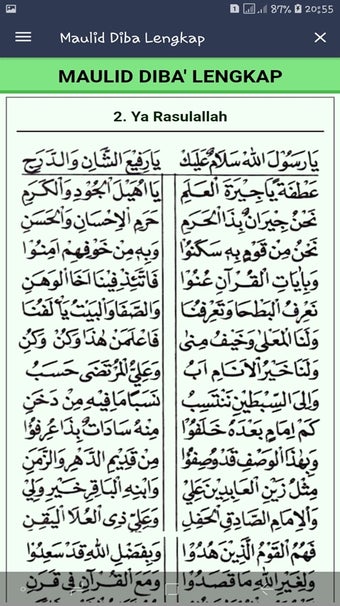 87% 20:55
Maulid Diba Lengkap
MAULID DIBA' LENGKAP
2. Ya Rasulallah
يَا رَسُوْلَ اللهِ سَلَامٌ عَلَيْكَ يَا رَفِيْعَ الشَّانِ وَالدَّرَجِ
عَطْفَةً يَّاجِيْرَةَ الْعَلَمِ يَا اُهَيْلَ الْجُوْدِ وَالْكَرَمِ
نَحْنُ جِيْرَانٌ بِذَا الْحَرَمِ حَرَمِ الْاِحْسَانِ وَالْحَسَنِ
نَحْنُ مِنْ قَوْمٍ بِهِ سَكَنُوْا وَبِهِ مِنْ خَوْفِهِمْ اَمِنُوْا
وَبِاٰيَاتِ الْقُرْآنِ عُنُوْا فَاتَّئِدْ فِيْنَا اَخَا الْوَهَنِ
نَعْرِفُ الْبَطْحَا وَتَعْرِفُنَا وَالصَّفَا وَالْبَيْتُ يَأْلَفُنَا
وَلَنَا الْمَعْلٰى وَخَيْفُ مِنٰى فَاعْلَمَنْ هٰذَا وَكُنْ وَكُنِ
وَلَنَا خَيْرُ الْاَنَامِ اَبُ وَعَلِيُّ الْمُرْتَضٰى حَسَبُ
وَاِلَى السِّبْطَيْنِ نَنْتَسِبُ نَسَبًا مَا فِيْهِ مِنْ دَخَنِ
كَمْ اِمَامٍ بَعْدَهُ خَلَفُوْا مِنْهُ سَادَاتٌ بِذَا عُرِفُوْا
وَبِهٰذَا الْوَصْفِ قَدْ وُصِفُوْا مِنْ قَدِيْمِ الدَّهْرِ وَالزَّمَنِ
مِثْلُ زَيْنِ الْعَابِدِيْنَ عَلِيْ وَابْنِهِ الْبَاقِرِ خَيْرِ وَلِيْ
وَالْاِمَامِ الصَّادِقِ الْحَفِلِ وَعَلِيٍّ ذِى الْعُلَا الْيَقِنِ
فَهُمُ الْقَوْمُ الَّذِيْنَ هُدُوْا وَبِفَضْلِ اللهِ قَدْ سَعِدُوْا
وَلِغَيْرِ اللهِ مَا قَصَدُوْا وَمَعَ الْقُرْآنِ فِيْ قَرَنِ